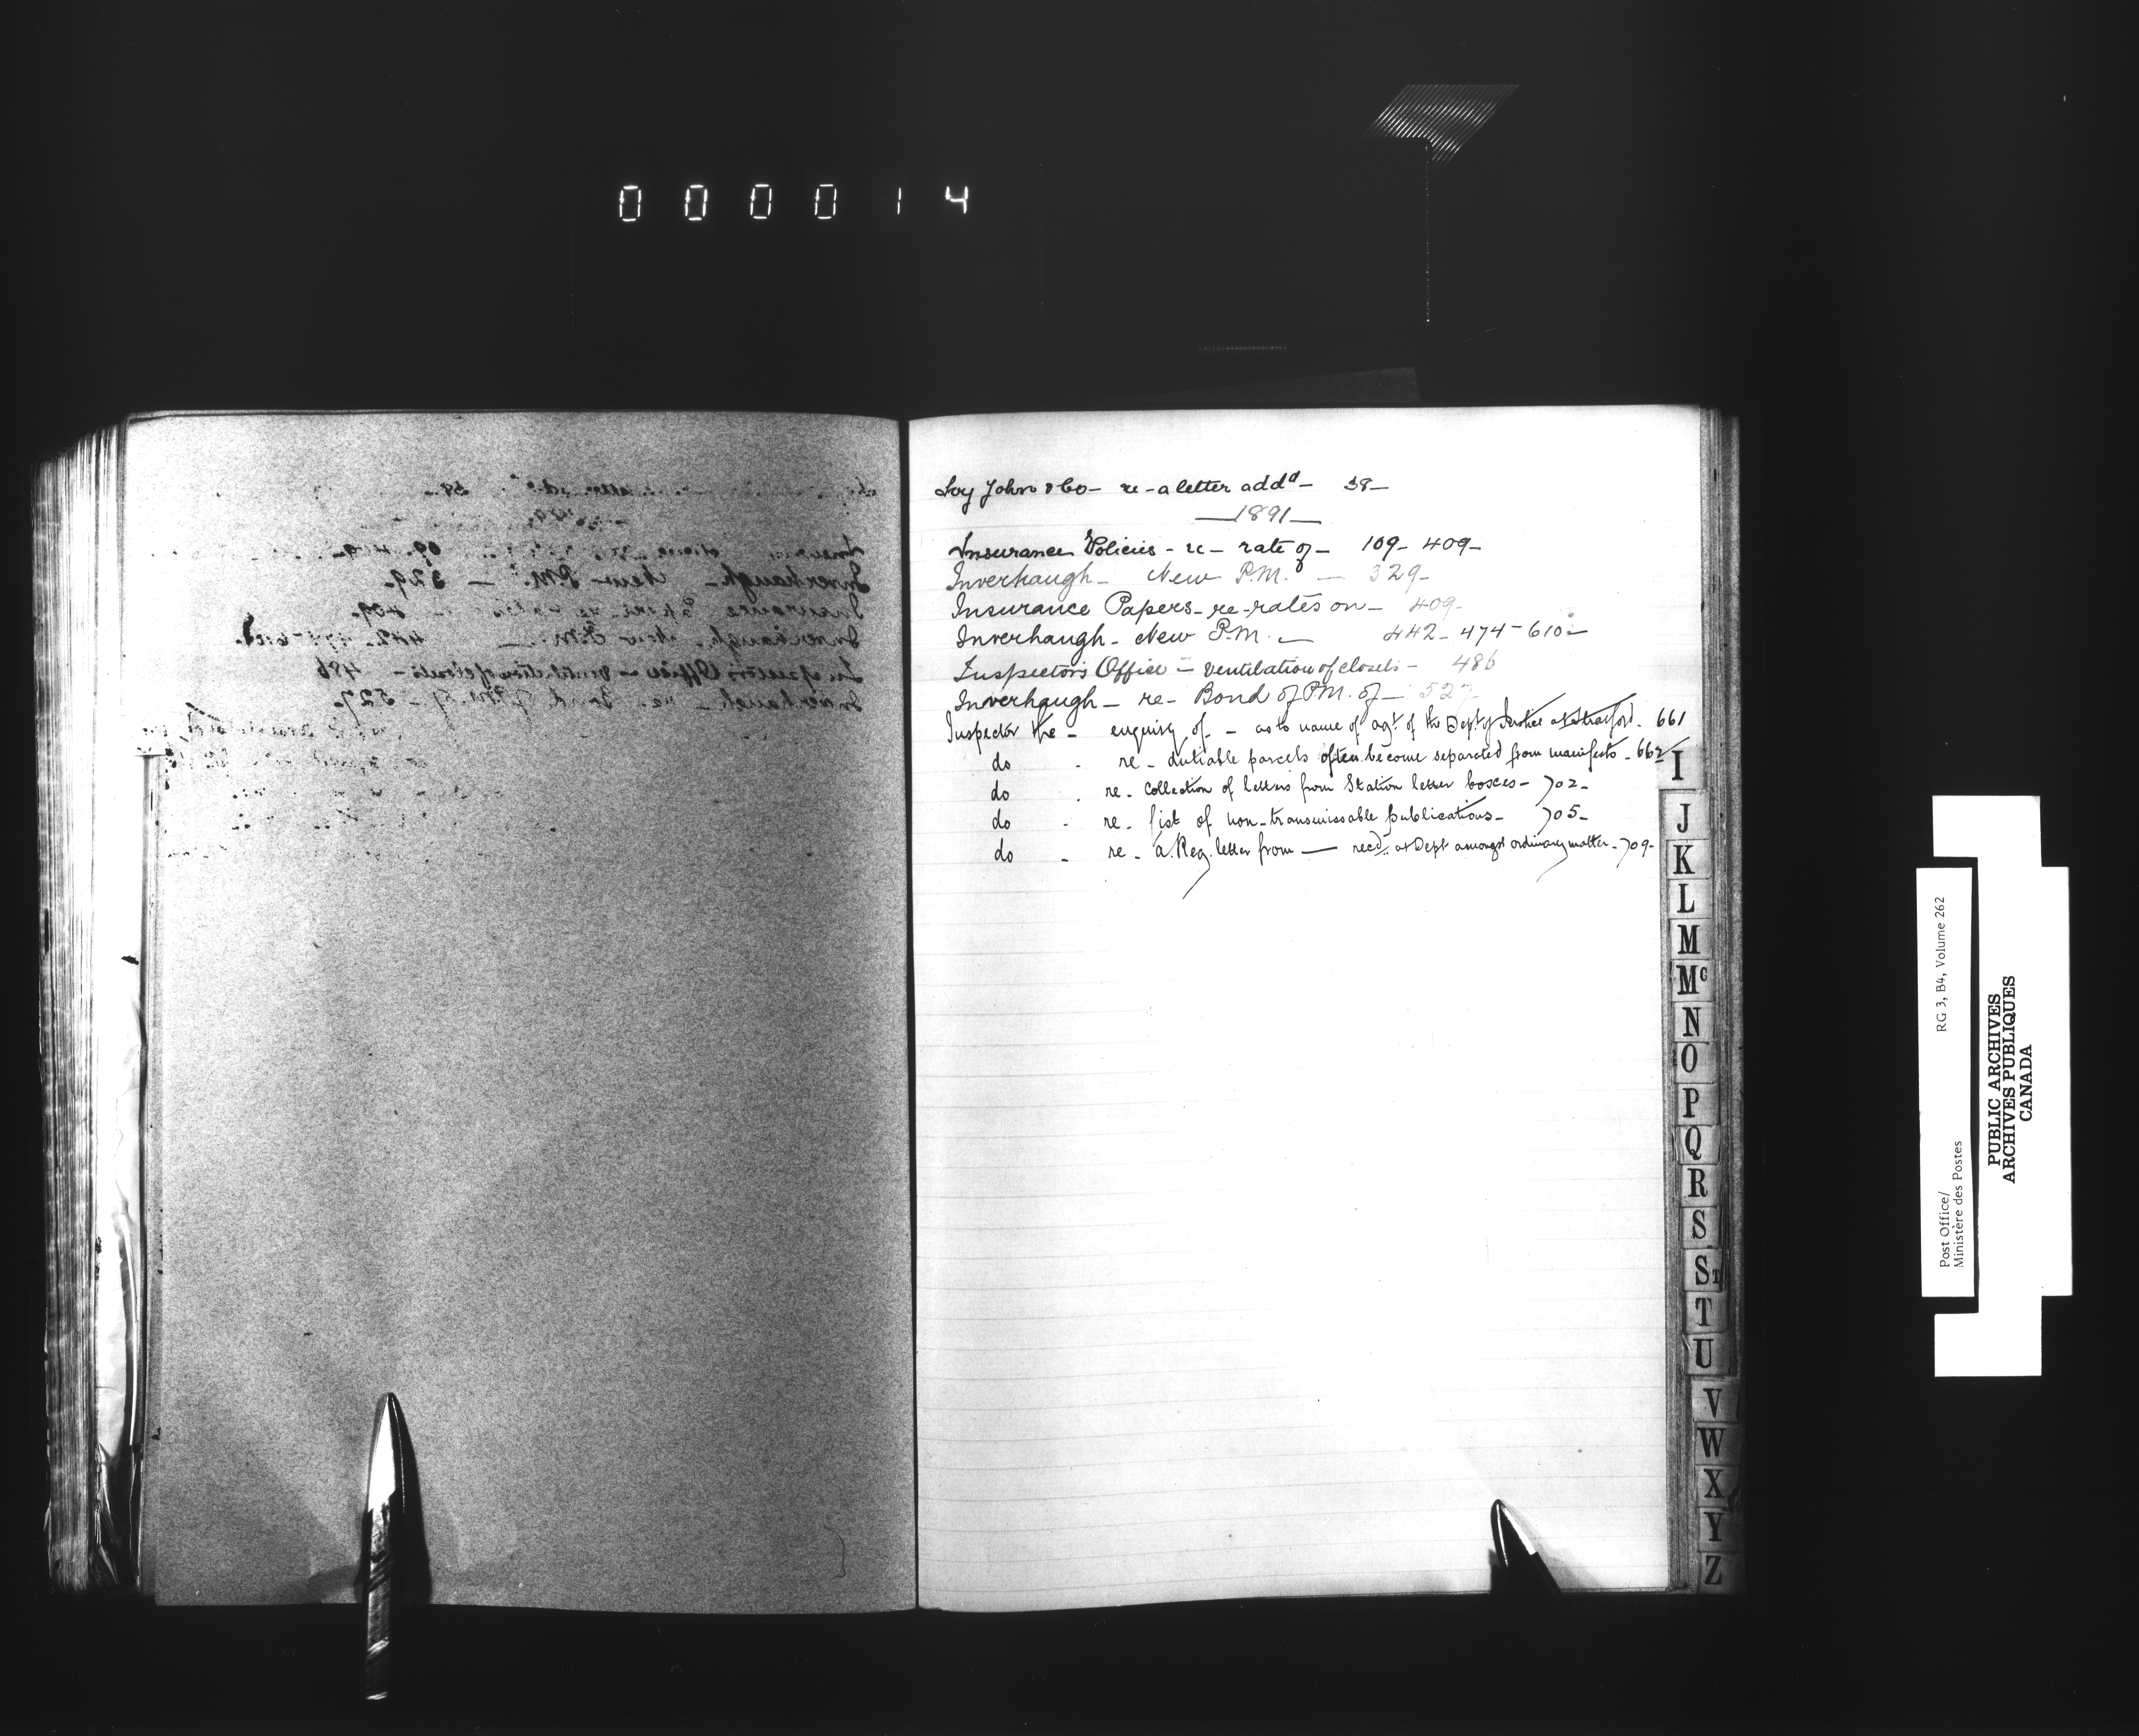 000014
Ivy John & Co— re - a letter addd— 38—
—1891—
Insurance Policies - re — rate of — 109 - 409 —
Inverhaugh — New P.M. — 329 —
Insurance Papers - re - rates on — 409 -
Inverhaugh - New P.M. — 442 - 474 - 610 -
Inspector's Office - Ventilation of closets - 486
Inverhaugh — re - Bond of P.M. of — 527
Inspector the - enquiry of - as to name of agt. of the Dept of Justice at Stratford - 661
do - re - dutiable parcels often become separated from manifests - 662
do - re - Collection of letters from Station letter boxes - 702 -
do - re - list of non-transmissable publications - 705 -
do - re - a Reg. letter from — recd. at Dept amongst ordinary matter - 709 -
I
J
K
L
M
Mc
N
O
P
Q
R
S
ST
T
U
V
W
X
Y
Z
Post Office/ RG 3, B4, Volume 262
Ministère des Postes
PUBLIC ARCHIVES
ARCHIVES PUBLIQUES
CANADA